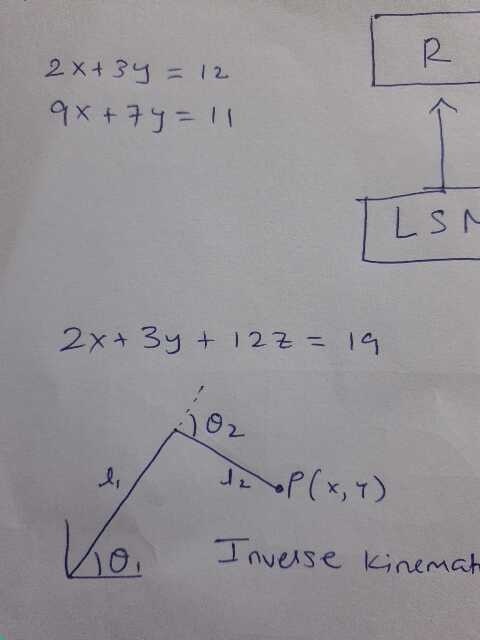 2x+3y = 12
9x+7y = 11
R
LSM
2x+3y+12z = 19
θ2
l1
l2
P(x,y)
θ1
Inverse Kinemat